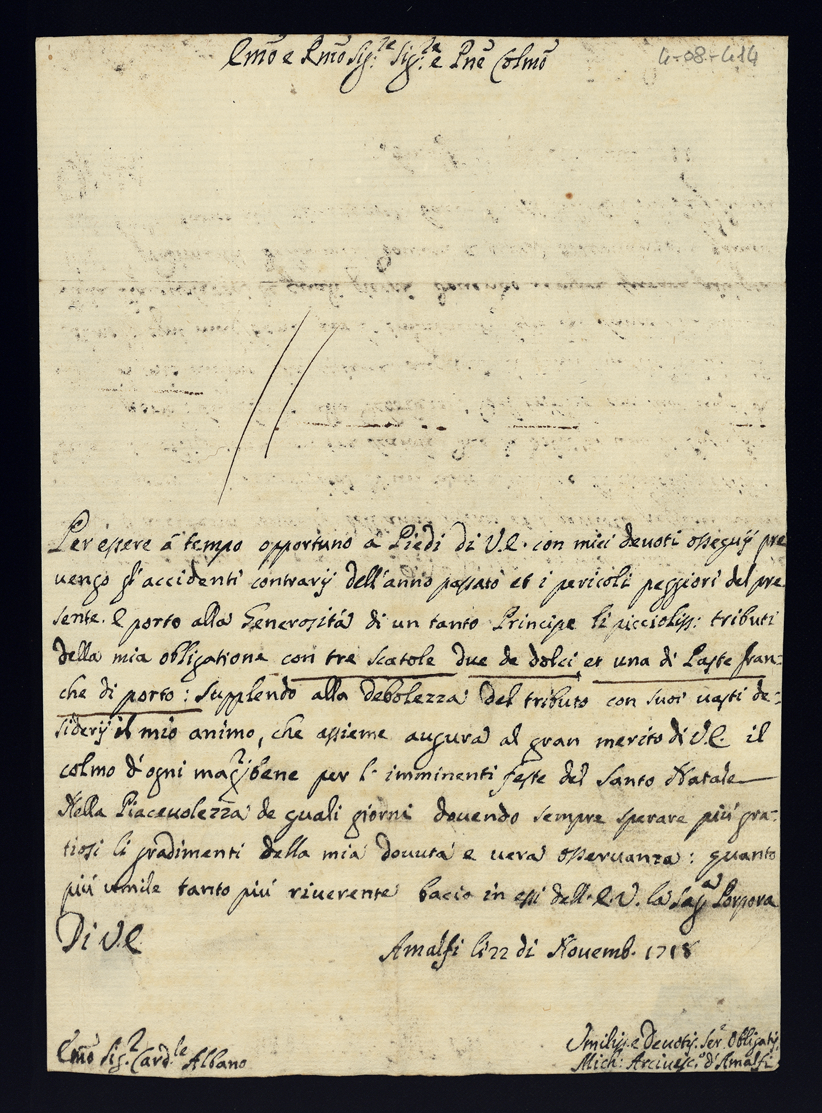 Emõ e Rmõ Sig.re Sig.re e Pnẽ Colmõ
4-08-414
Per essere à tempo opportuno à Piedi di V.E. con miei devoti ossequÿ pre
vengo gl'accidenti contrarÿ dell'anno passato et i pericoli peggiori del pre
sente. E porto alla Generosità di un tanto Principe li piccioliss: tributi
della mia obligatione con tre scatole due de dolci et una di Paste fran-
che di porto: supplendo alla debolezza del tributo con suoi vasti de-
siderÿ il mio animo, che assieme augura al gran merito di V.E. il
colmo d'ogni magr bene per l'imminenti feste del Santo Natale
Nella Piacevolezza de quali giorni dovendo sempre sperare più gra-
tiosi li gradimenti della mia dovuta e vera osservanza: quanto
più umile tanto più riverente bacio in essi dell'E.V. la Sagra Porpora
Di V.E.
Amalfi li 22 di Novemb. 1718
Emõ Sig.r Card.le Albano
Umiliss. e Devotis. Ser.e Obligatis.
Mich: Arcivesc.o d'Amalfi